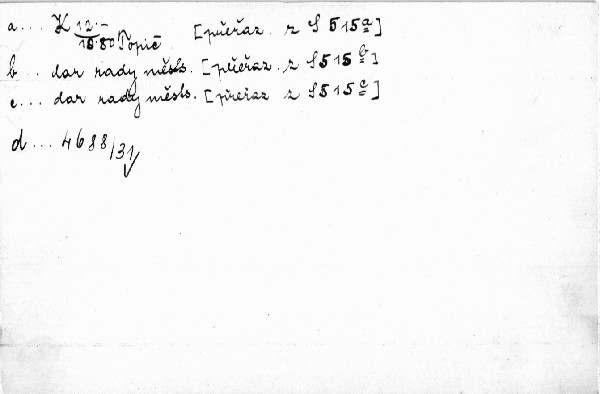 a ... K 12.- / 10.80 Topič [přeřaz. z S 515a]
b ... dar rady měsls. [přeřaz. z S 515b]
c ... dar rady měsls. [přeřaz z S 515c]
d ... 4688/31 ✓